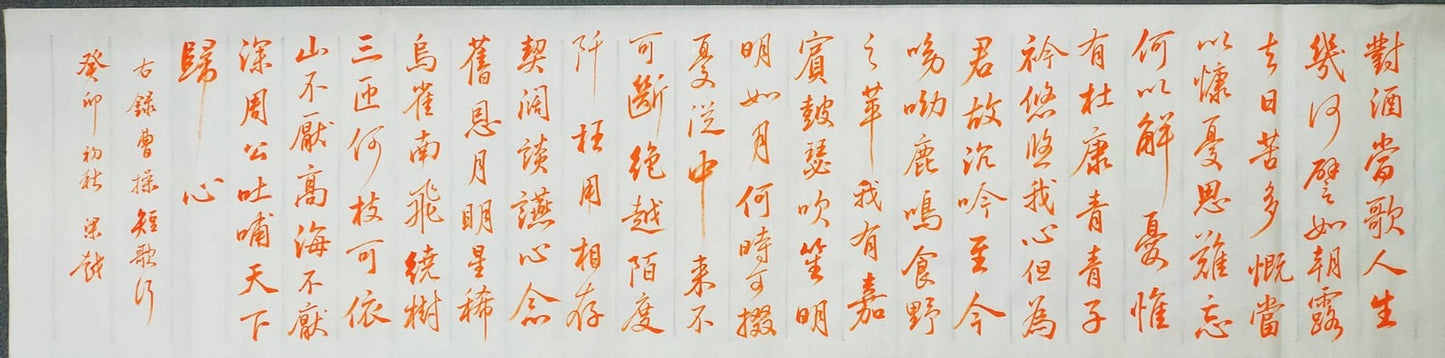 對酒當歌人生
幾何譬如朝露
去日苦多慨當
以慷憂思難忘
何以解憂惟
有杜康青青子
衿悠悠我心但為
君故沉吟至今
呦呦鹿鳴食野
之苹我有嘉
賓鼓瑟吹笙明
明如月何時可掇
憂從中来不
可斷绝越陌度
阡枉用相存
契闊談讌心念
舊恩月明星稀
烏雀南飛繞樹
三匝何枝可依
山不厭高海不厭
深周公吐哺天下
歸心
右錄曹操短歌行
癸卯初秋梁